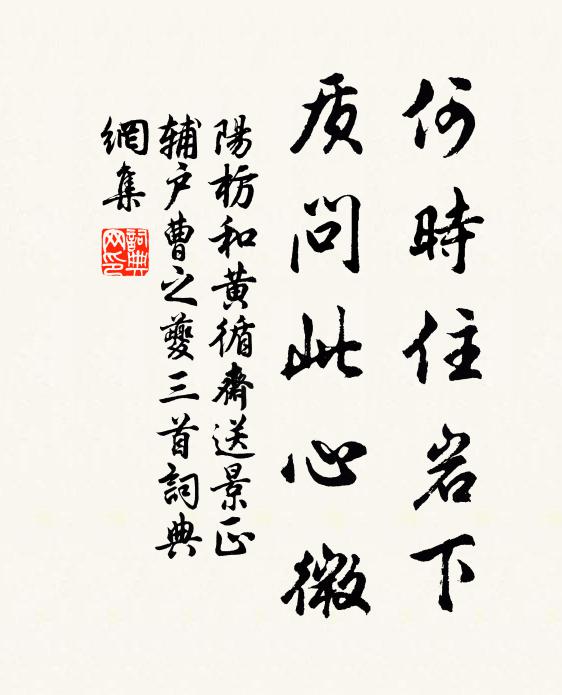 何時住岩下
质問此心微
陽枋和黄循齋送景正
辅户曹之夔三首詞典
網集
詞典網印